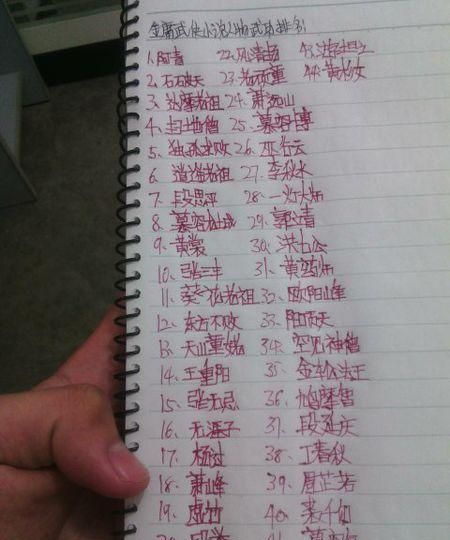 金庸武侠小说人物武功排名
1. 阿青
2. 石破天
3. 达摩老祖
4. 扫地僧
5. 独孤求败
6. 逍遥老祖
7. 段思平
8. 慕容龙城
9. 黄裳
10. 张三丰
11. 葵花老祖
12. 东方不败
13. 天山童姥
14. 王重阳
15. 张无忌
16. 无涯子
17. 杨过
18. 萧峰
19. 虚竹
22. 风清扬
23. 老顽童
24. 萧远山
25. 慕容博
26. 巫行云
27. 李秋水
28. 一灯大师
29. 郭靖
30. 洪七公
31. 黄药师
32. 欧阳峰
33. 阳顶天
34. 空见神僧
35. 金轮法王
36. 鸠摩智
37. 段延庆
38. 丁春秋
39. 周芷若
40. 裘千仞
43. 游坦之
44. 黄衫女